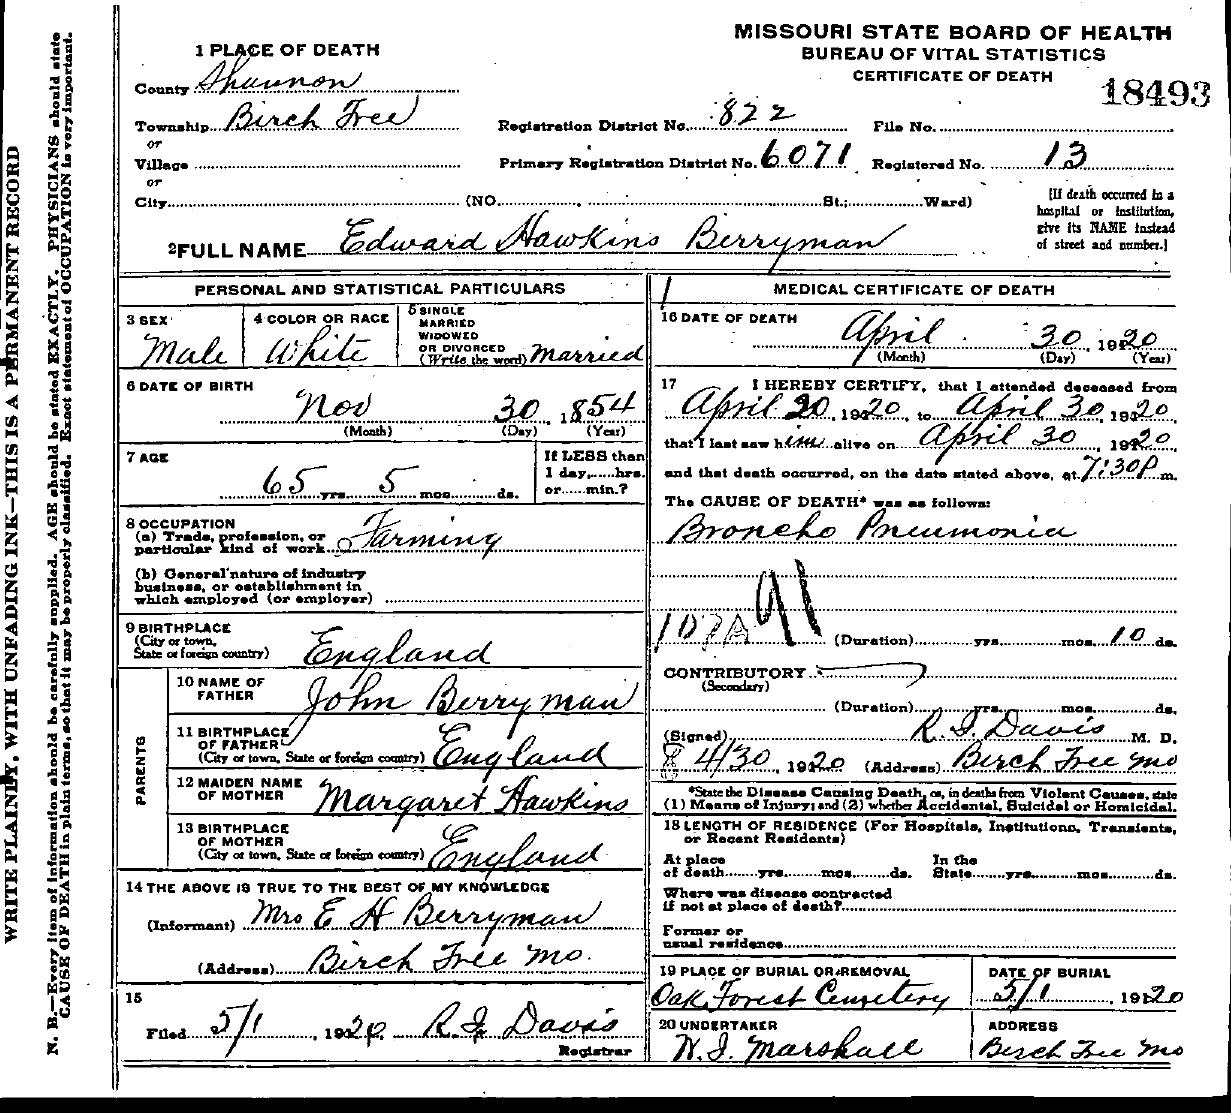 MISSOURI STATE BOARD OF HEALTH
BUREAU OF VITAL STATISTICS
CERTIFICATE OF DEATH
18493
1 PLACE OF DEATH
County Shannon
Township Birch Tree
or
Village
or
City (NO. St.; Ward)
Registration District No. 822 File No.
Primary Registration District No. 6071 Registered No. 13
[If death occurred in a
hospital or institution,
give its NAME instead
of street and number.]
2 FULL NAME Edward Hawkins Berryman
PERSONAL AND STATISTICAL PARTICULARS
3 SEX
Male
4 COLOR OR RACE
White
5 SINGLE
MARRIED
WIDOWED
OR DIVORCED
(Write the word) Married
6 DATE OF BIRTH
Nov 30, 1854
(Month) (Day) (Year)
7 AGE
65 yrs. 5 mos. ds.
If LESS than
1 day, hrs.
or min.?
8 OCCUPATION
(a) Trade, profession, or
particular kind of work Farming
(b) General nature of industry
business, or establishment in
which employed (or employer)
9 BIRTHPLACE
(City or town,
State or foreign country) England
PARENTS
10 NAME OF
FATHER John Berryman
11 BIRTHPLACE
OF FATHER
(City or town, State or foreign country) England
12 MAIDEN NAME
OF MOTHER Margaret Hawkins
13 BIRTHPLACE
OF MOTHER
(City or town, State or foreign country) England
14 THE ABOVE IS TRUE TO THE BEST OF MY KNOWLEDGE
(Informant) Mrs E H Berryman
(Address) Birch Tree Mo.
15
Filed 5/1, 1920 R. I. Davis
Registrar
MEDICAL CERTIFICATE OF DEATH
16 DATE OF DEATH
April 30, 1920
(Month) (Day) (Year)
17 I HEREBY CERTIFY, that I attended deceased from
April 20, 1920, to April 30, 1920
that I last saw him alive on April 30, 1920
and that death occurred, on the date stated above, at 7:30P m.
The CAUSE OF DEATH* was as follows:
Broncho Pneumonia
107A 91
(Duration) yrs. mos. 10 ds.
CONTRIBUTORY
(Secondary)
(Duration) yrs. mos. ds.
(Signed) R. I. Davis M. D.
4/30, 1920 (Address) Birch Tree Mo
*State the Disease Causing Death, or, in deaths from Violent Causes, state
(1) Means of Injury; and (2) whether Accidental, Suicidal or Homicidal.
18 LENGTH OF RESIDENCE (For Hospitals, Institutions, Transients,
or Recent Residents)
At place
of death yrs. mos. ds.
In the
State yrs. mos. ds.
Where was disease contracted
if not at place of death?
Former or
usual residence
19 PLACE OF BURIAL OR REMOVAL
Oak Forest Cemetery
DATE OF BURIAL
5/1, 1920
20 UNDERTAKER
W. I. Marshall
ADDRESS
Birch Tree Mo
WRITE PLAINLY, WITH UNFADING INK—THIS IS A PERMANENT RECORD
N. B.—Every item of information should be carefully supplied. AGE should be stated EXACTLY. PHYSICIANS should state
CAUSE OF DEATH in plain terms, so that it may be properly classified. Exact statement of OCCUPATION is very important.